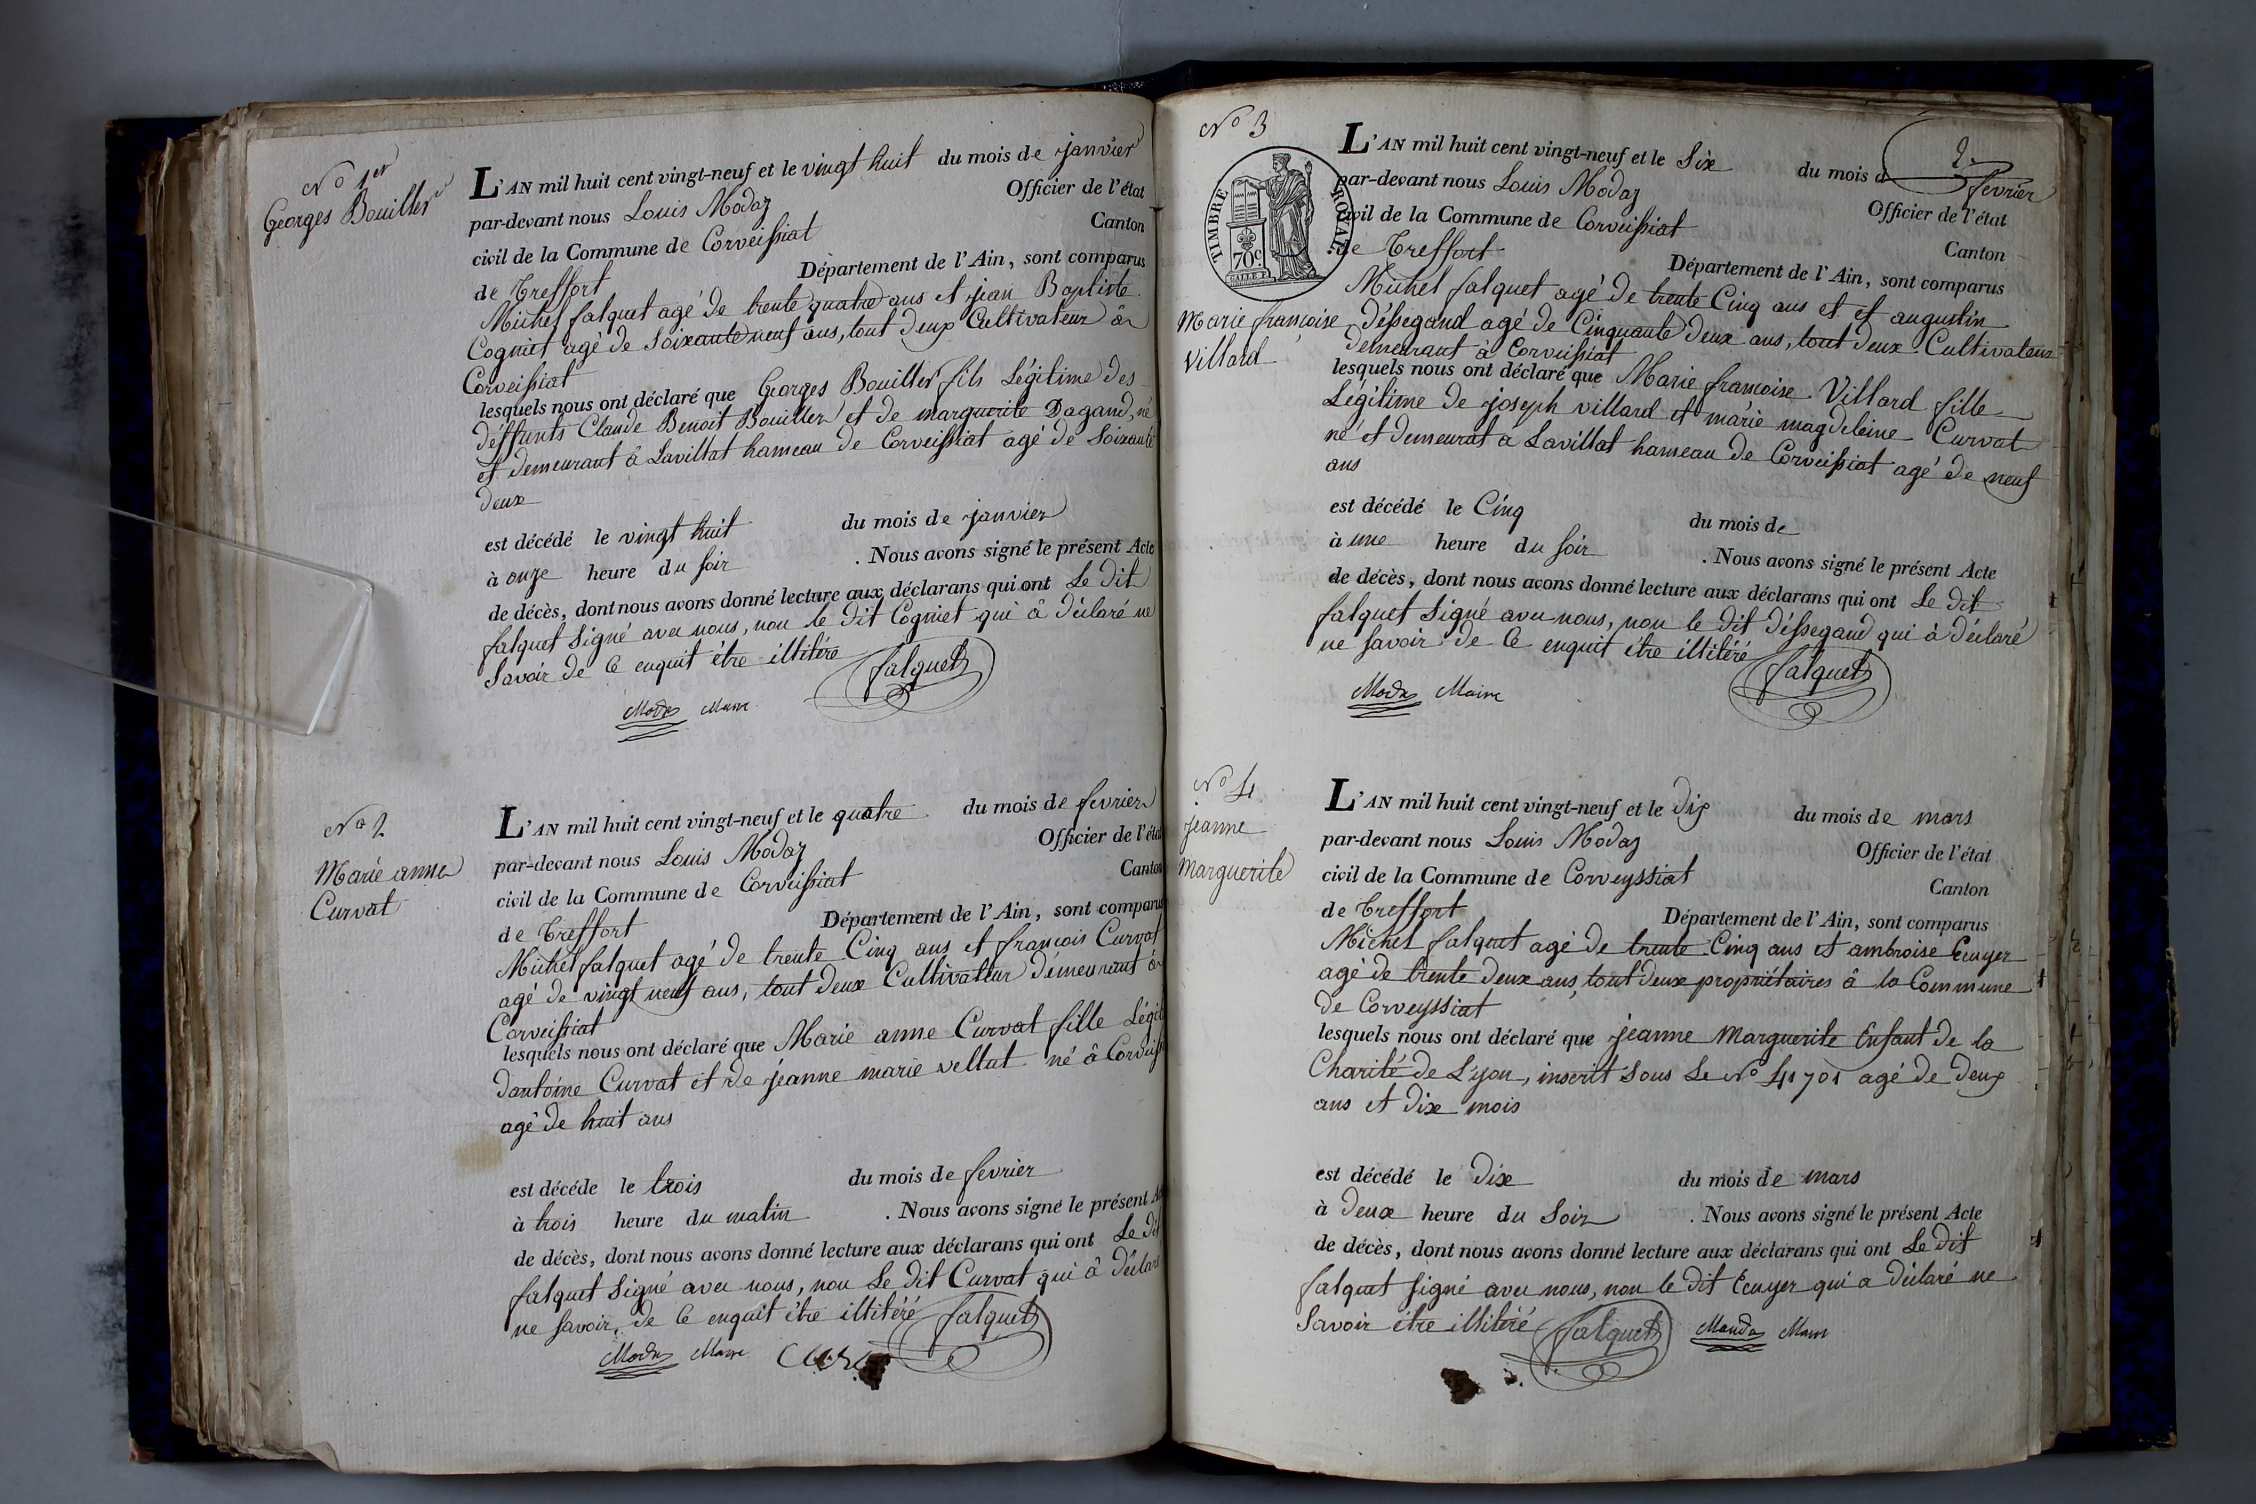 N° 1er
Georges Bouiller
L'AN mil huit cent vingt-neuf et le vingt huit du mois de janvier
par-devant nous Louis Modaz Officier de l'état
civil de la Commune de Corveissiat Canton
de Treffort Département de l'Ain, sont comparus
Michel falquet agé de trente quatre ans et jean Baptiste
Cogniet agé de soixante neuf ans, tout deux Cultivateur à
Corveissiat
lesquels nous ont déclaré que Georges Bouiller fils Légitime des
déffunts Claude Benoit Bouiller et de marguerite Dagand, né
et demeurant â Lavillat hameau de Corveissiat agé de Soixante
deux
est décédé le vingt huit du mois de janvier
à onze heure du soir . Nous avons signé le présent Acte
de décès, dont nous avons donné lecture aux déclarans qui ont Le dit
falquet Signé avec nous, non le dit Cogniet qui â déclaré ne
Savoir de Ce enquit être illitéré
falquet
Modaz Maire
N° 2
Marie anne
Curvat
L'AN mil huit cent vingt-neuf et le quatre du mois de fevrier
par-devant nous Louis Modaz Officier de l'état
civil de la Commune de Corveissiat Canton
de Treffort Département de l'Ain, sont comparus
Michel falquet agé de trente Cinq ans et françois Curvat
agé de vingt neuf ans, tout deux Cultivateur démeurant à
Corveissiat
lesquels nous ont déclaré que Marie anne Curvat fille Légit
dantoine Curvat et de jeanne marie vellat né â Corveiss
agé de huit ans
est décéde le trois du mois de fevrier
à trois heure du matin . Nous avons signé le présent
de décès, dont nous avons donné lecture aux déclarans qui ont Le dit
falquet Signé avec nous, non Le dit Curvat qui â déclaré
ne Savoir, de Ce enquit être illitéré falquet
Modaz Maire
N° 3
2
TIMBRE ROYAL
70c
Marie françoise
Villard
L'AN mil huit cent vingt-neuf et le Six du mois d fevrier
par-devant nous Louis Modaz Officier de l'état
civil de la Commune de Corveissiat Canton
de Treffort Département de l'Ain, sont comparus
Michel falquet agé de trente Cinq ans et et augustin
Déssegand agé de Cinquante deux ans, tout deux Cultivateur
demeurant à Corveissiat
lesquels nous ont déclaré que Marie françoise Villard fille
Légitime de joseph villard et marie magdeleine Curvat
né et demeurat a Lavillat hameau de Corveissiat agé de neuf
ans
est décédé le Cinq du mois de
à une heure du soir . Nous avons signé le présent Acte
de décès, dont nous avons donné lecture aux déclarans qui ont Le dit
falquet Signé avec nous, non le dit Déssegand qui à déclaré
ne Savoir de Ce enquit être illitéré
falquet
Modaz Maire
N° 4
jeanne
Marguerite
L'AN mil huit cent vingt-neuf et le dix du mois de mars
par-devant nous Louis Modaz Officier de l'état
civil de la Commune de Corveyssiat Canton
de Treffort Département de l'Ain, sont comparus
Michel falquet agé de trente Cinq ans et ambroise Ecuyer
agé de trente deux ans, tout deux propriétaires â la Commune
de Corveyssiat
lesquels nous ont déclaré que jeanne Marguerite Enfant de la
Charité de Lyon, inscrit Sous Le N° 41701 agé de deux
ans et dix mois
est décédé le Dix du mois de mars
à Deux heure du Soir . Nous avons signé le présent Acte
de décès, dont nous avons donné lecture aux déclarans qui ont Le dit
falquet signé avec nous, non le dit Ecuyer qui a déclaré ne
Savoir être illitéré falquet Modaz Maire